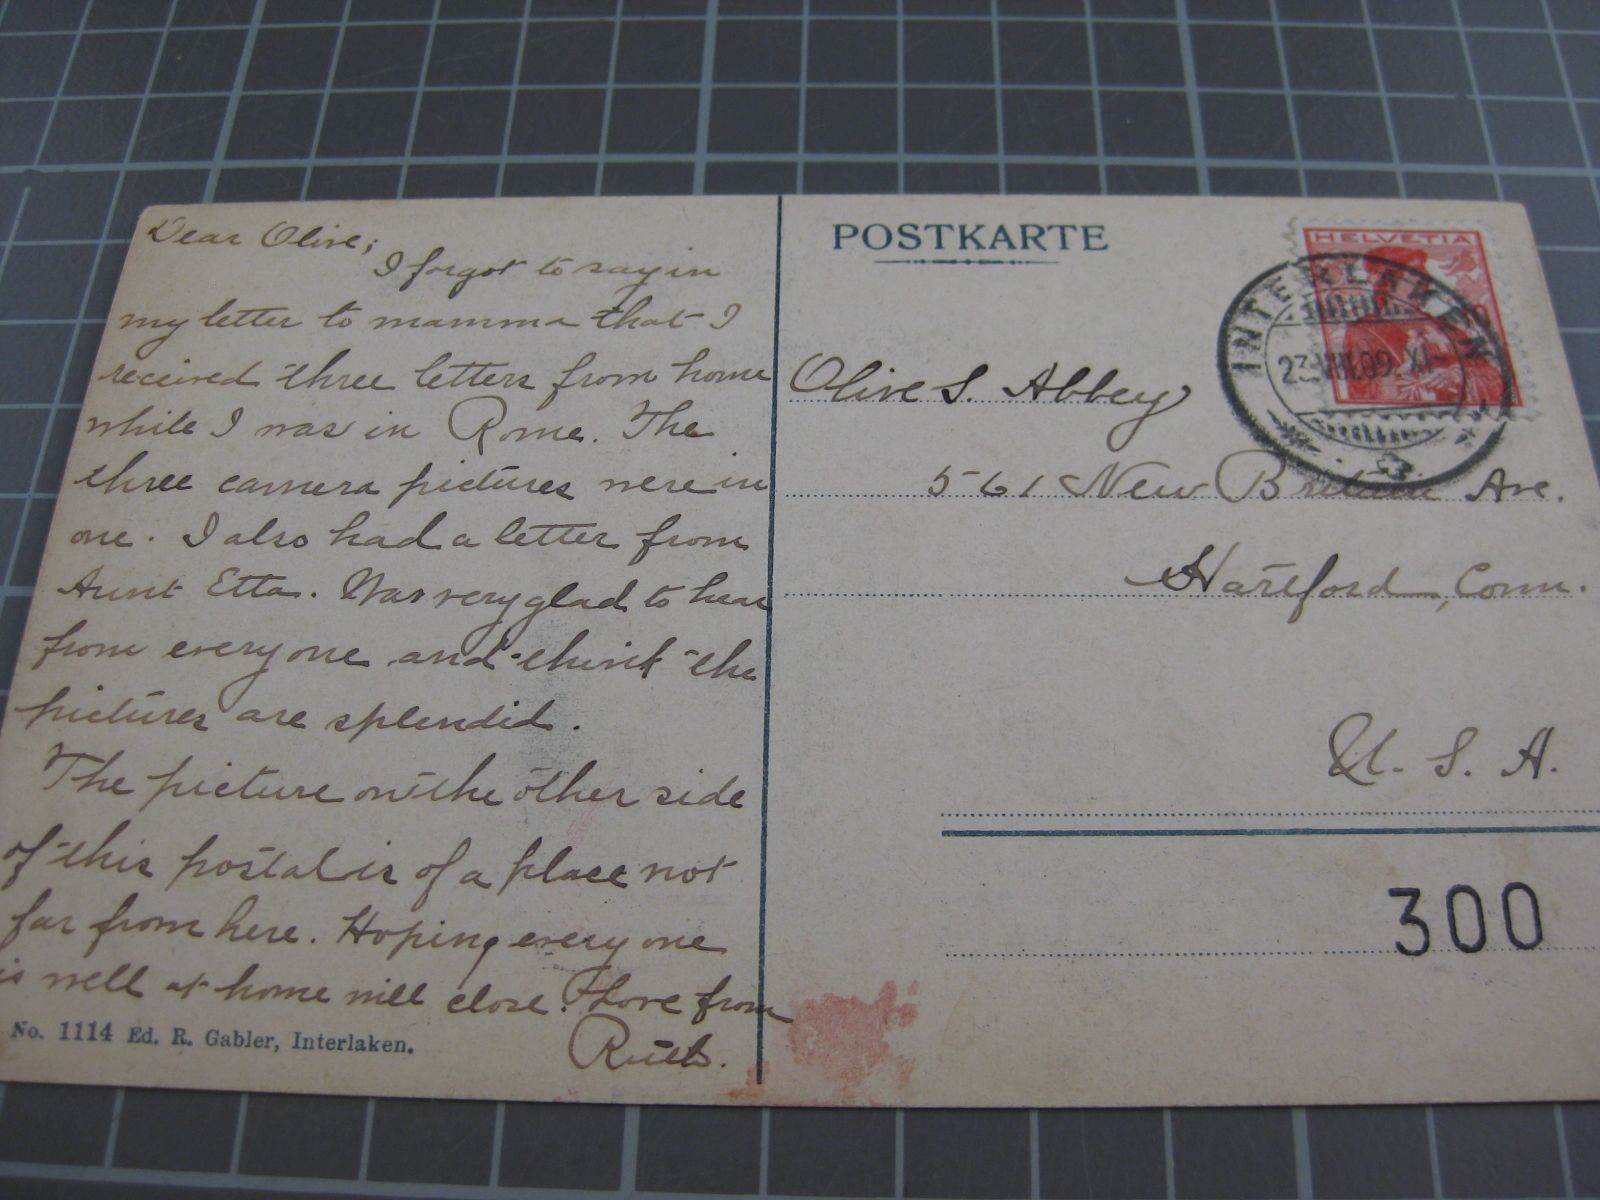 Dear Olive;
I forgot to say in
my letter to mamma that I
received three letters from home
while I was in Rome. The
three camera pictures were in
one. I also had a letter from
Aunt Etta. Was very glad to hear
from every one and think the
pictures are splendid.
The picture on the other side
of this postal is of a place not
far from here. Hoping every one
is well at home will close. Love from
Ruth.
No. 1114 Ed. R. Gabler, Interlaken.
POSTKARTE
HELVETIA
INTERLAKEN
23.VIII.09.XI-
Olive S. Abbey
561 New Britain Ave.
Hartford, Conn.
U. S. A.
300